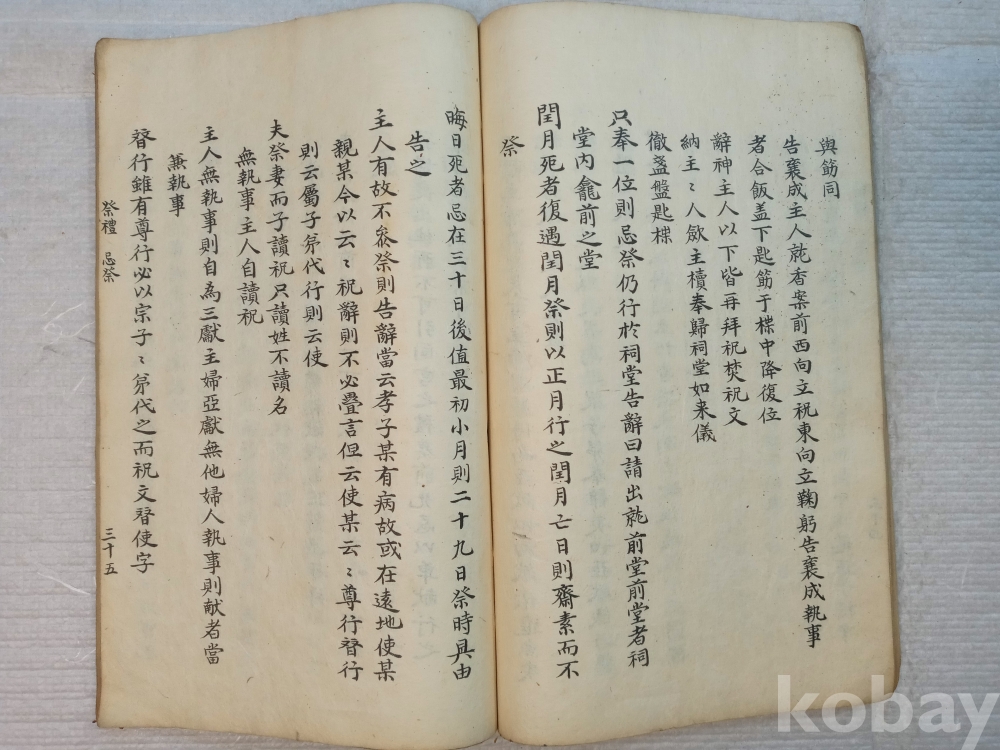 與筯同
告襄成主人就香案前西向立祝東向立鞠躬告襄成執事
者合飯盖下匙筯于楪中降復位
辭神主人以下皆再拜祝焚祝文
納主〻人斂主櫝奉歸祠堂如来儀
徹盞盤匙楪
只奉一位則忌祭仍行於祠堂告辭曰請出就前堂前堂者祠
堂內龕前之堂
閏月死者復遇閏月祭則以正月行之閏月亡日則齋素而不
祭
晦日死者忌在三十日後值最初小月則二十九日祭時具由
告之
主人有故不叅祭則告辭當云孝子某有病故或在遠地使某
親某今以云〻祝辭則不必疊言但云使某云〻尊行替行
則云屬子弟代行則云使
夫祭妻而子讀祝只讀姓不讀名
無執事主人自讀祝
主人無執事則自為三獻主婦亞獻無他婦人執事則献者當
兼執事
替行雖有尊行必以宗子〻弟代之而祝文替使字
祭禮 忌祭 三十五
kobay